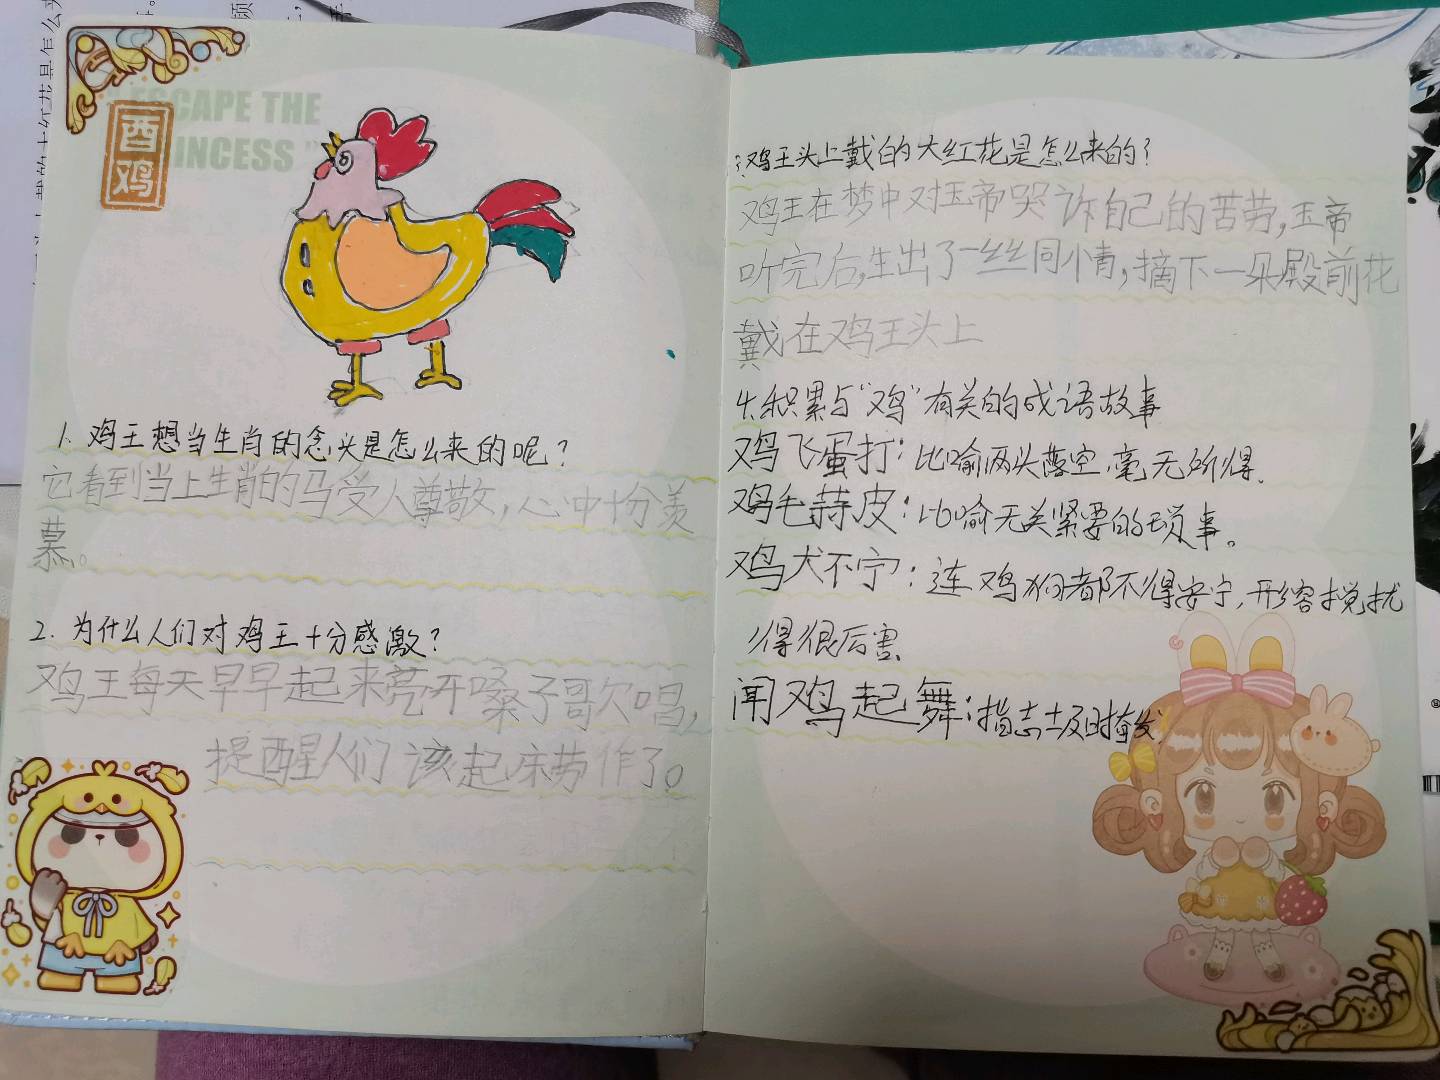 ESCAPE THE
INCESS "
酉鸡
1. 鸡王想当生肖的念头是怎么来的呢?
它看到当上生肖的马受人尊敬,心中十分羡
慕。
2. 为什么人们对鸡王十分感激?
鸡王每天早早起来亮开嗓子哥欠唱,
提醒人们该起床劳作了。
3.鸡王头上戴的大红花是怎么来的?
鸡王在梦中对玉帝哭诉自己的苦劳,玉帝
听完后,生出了一丝丝同情,摘下一朵殿前花
戴在鸡王头上
4.积累与“鸡”有关的成语故事
鸡飞蛋打:比喻两头落空,毫无所得.
鸡毛蒜皮:比喻无关紧要的琐事。
鸡犬不宁:连鸡狗都不得安宁,形容搅扰
得很厉害.
闻鸡起舞:指志士及时奋发